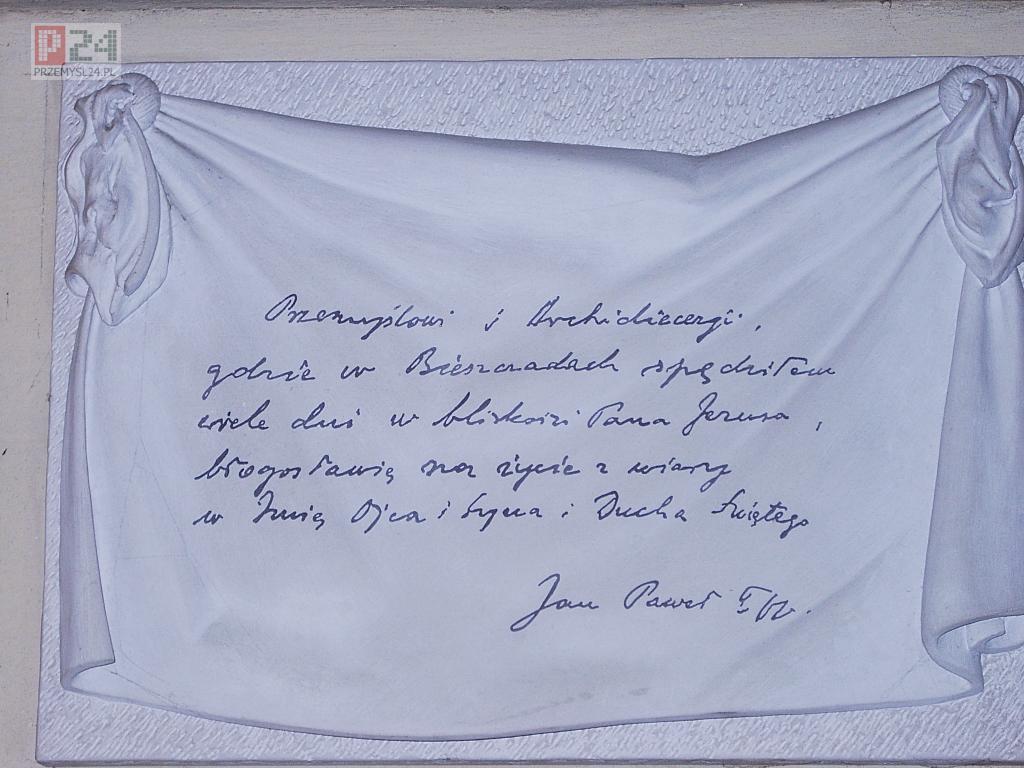 P24
PRZEMYSL24.PL
Przemyślowi i Archidiecezji,
gdzie w Bieszczadach spędziłem
wiele dni w bliskości Pana Jezusa,
błogosławię na życie z wiary
w Imię Ojca i Syna i Ducha Świętego
Jan Paweł II